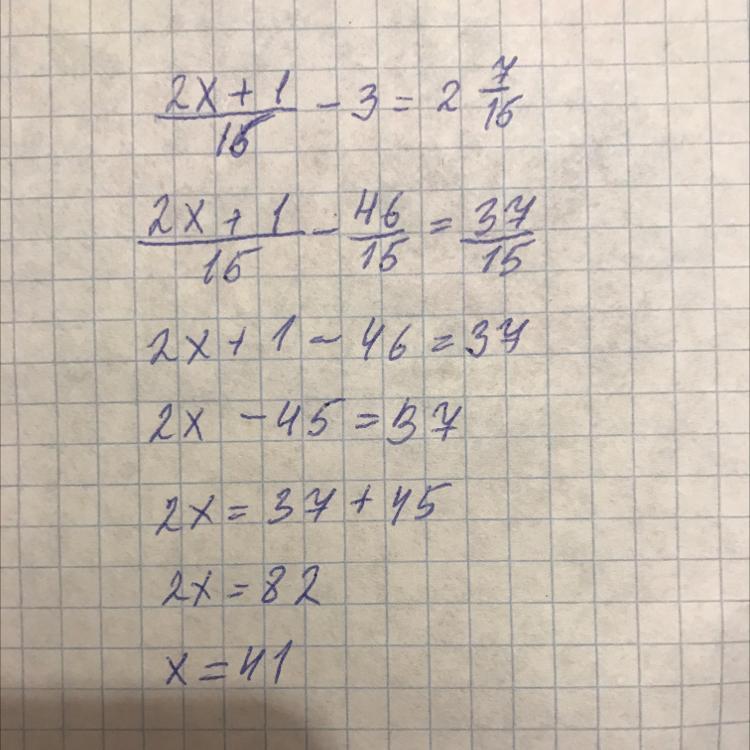 (2x + 1)/15 - 3 = 2 7/15
(2x + 1)/15 - 46/15 = 37/15
2x + 1 - 46 = 37
2x - 45 = 37
2x = 37 + 45
2x = 82
x = 41